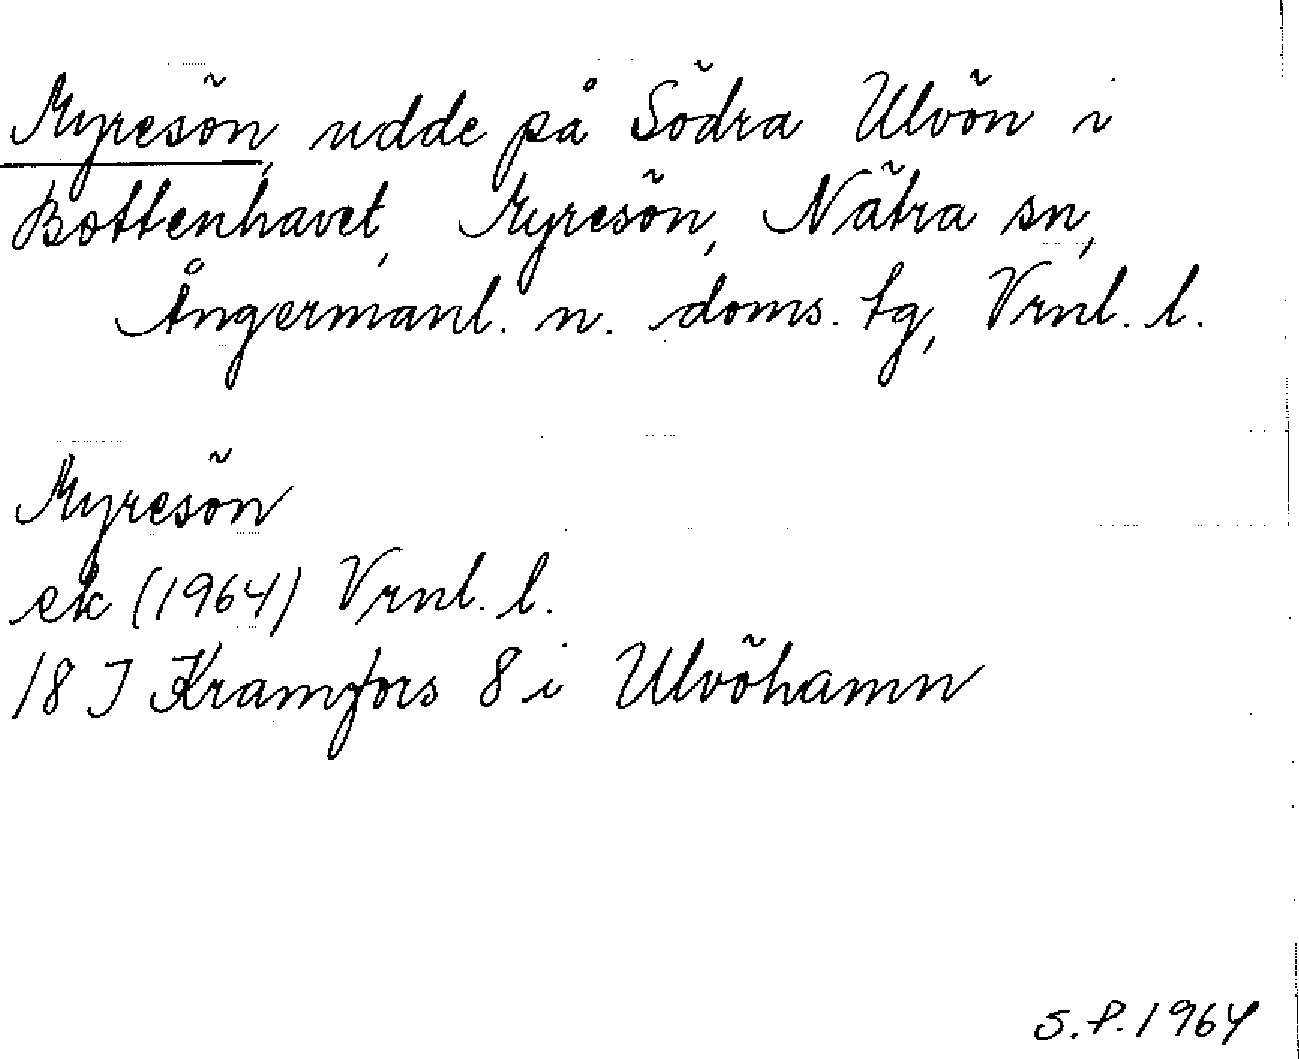 Myresön, udde på Södra Ulvön i
Bottenhavet, Myresön, Nätra sn,
Ångermanl. n. doms. tg, Vrnl. l.
Myresön
ek (1964) Vrnl. l.
18 J Kramfors 8 i Ulvöhamn
S.P. 1964